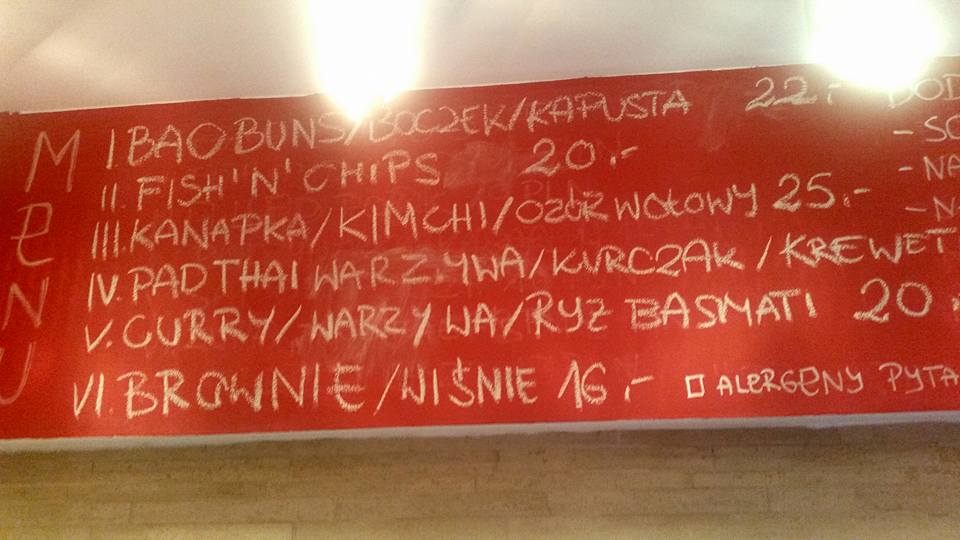 MeNU
I. BAO BUNS/BOCZEK/KAPUSTA 22.-
II. FISH'N'CHIPS 20.-
III. KANAPKA/KIMCHI/OZÓR WOŁOWY 25.-
IV. PAD THAI WARZYWA/KURCZAK/KREWET
V. CURRY/WARZYWA/RYŻ BASMATI 20
VI. BROWNIE/WIŚNIE 16.-
DOD
- SO
- NA
- N
ALERGENY PYTA